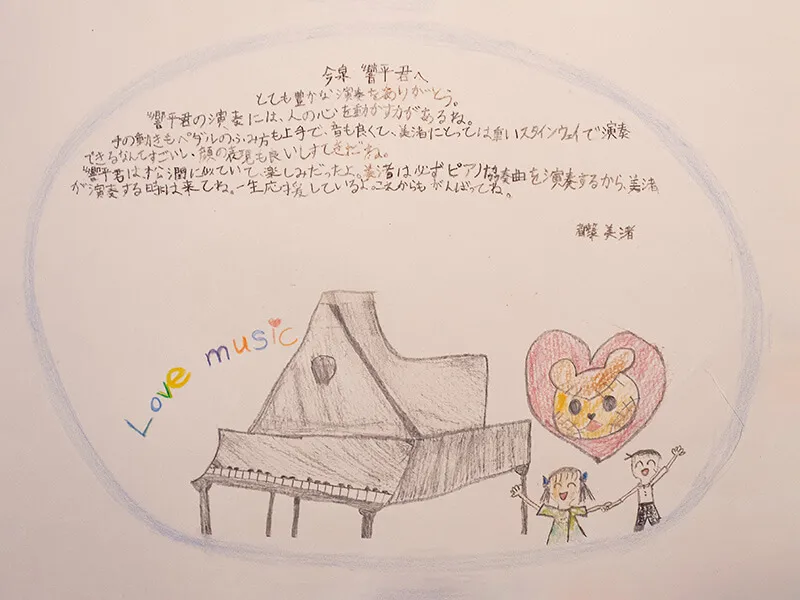 今泉 響平君へ
とても豊かな演奏をありがとう。
響平君の演奏には、人の心を動かす力があるね。
手の動きもペダルのふみ方も上手で、音も良くて、美渚にとっては重いスタインウェイで演奏
できるなんてすごいし、顔の表現も良いしすてきだね。
響平君は、松潤に似ていて、楽しみだったよ。美渚は必ずピアノ協奏曲を演奏するから、美渚
が演奏する時は来てね。一生応援しているよ。これからもがんばってね。
都築 美渚
Love music